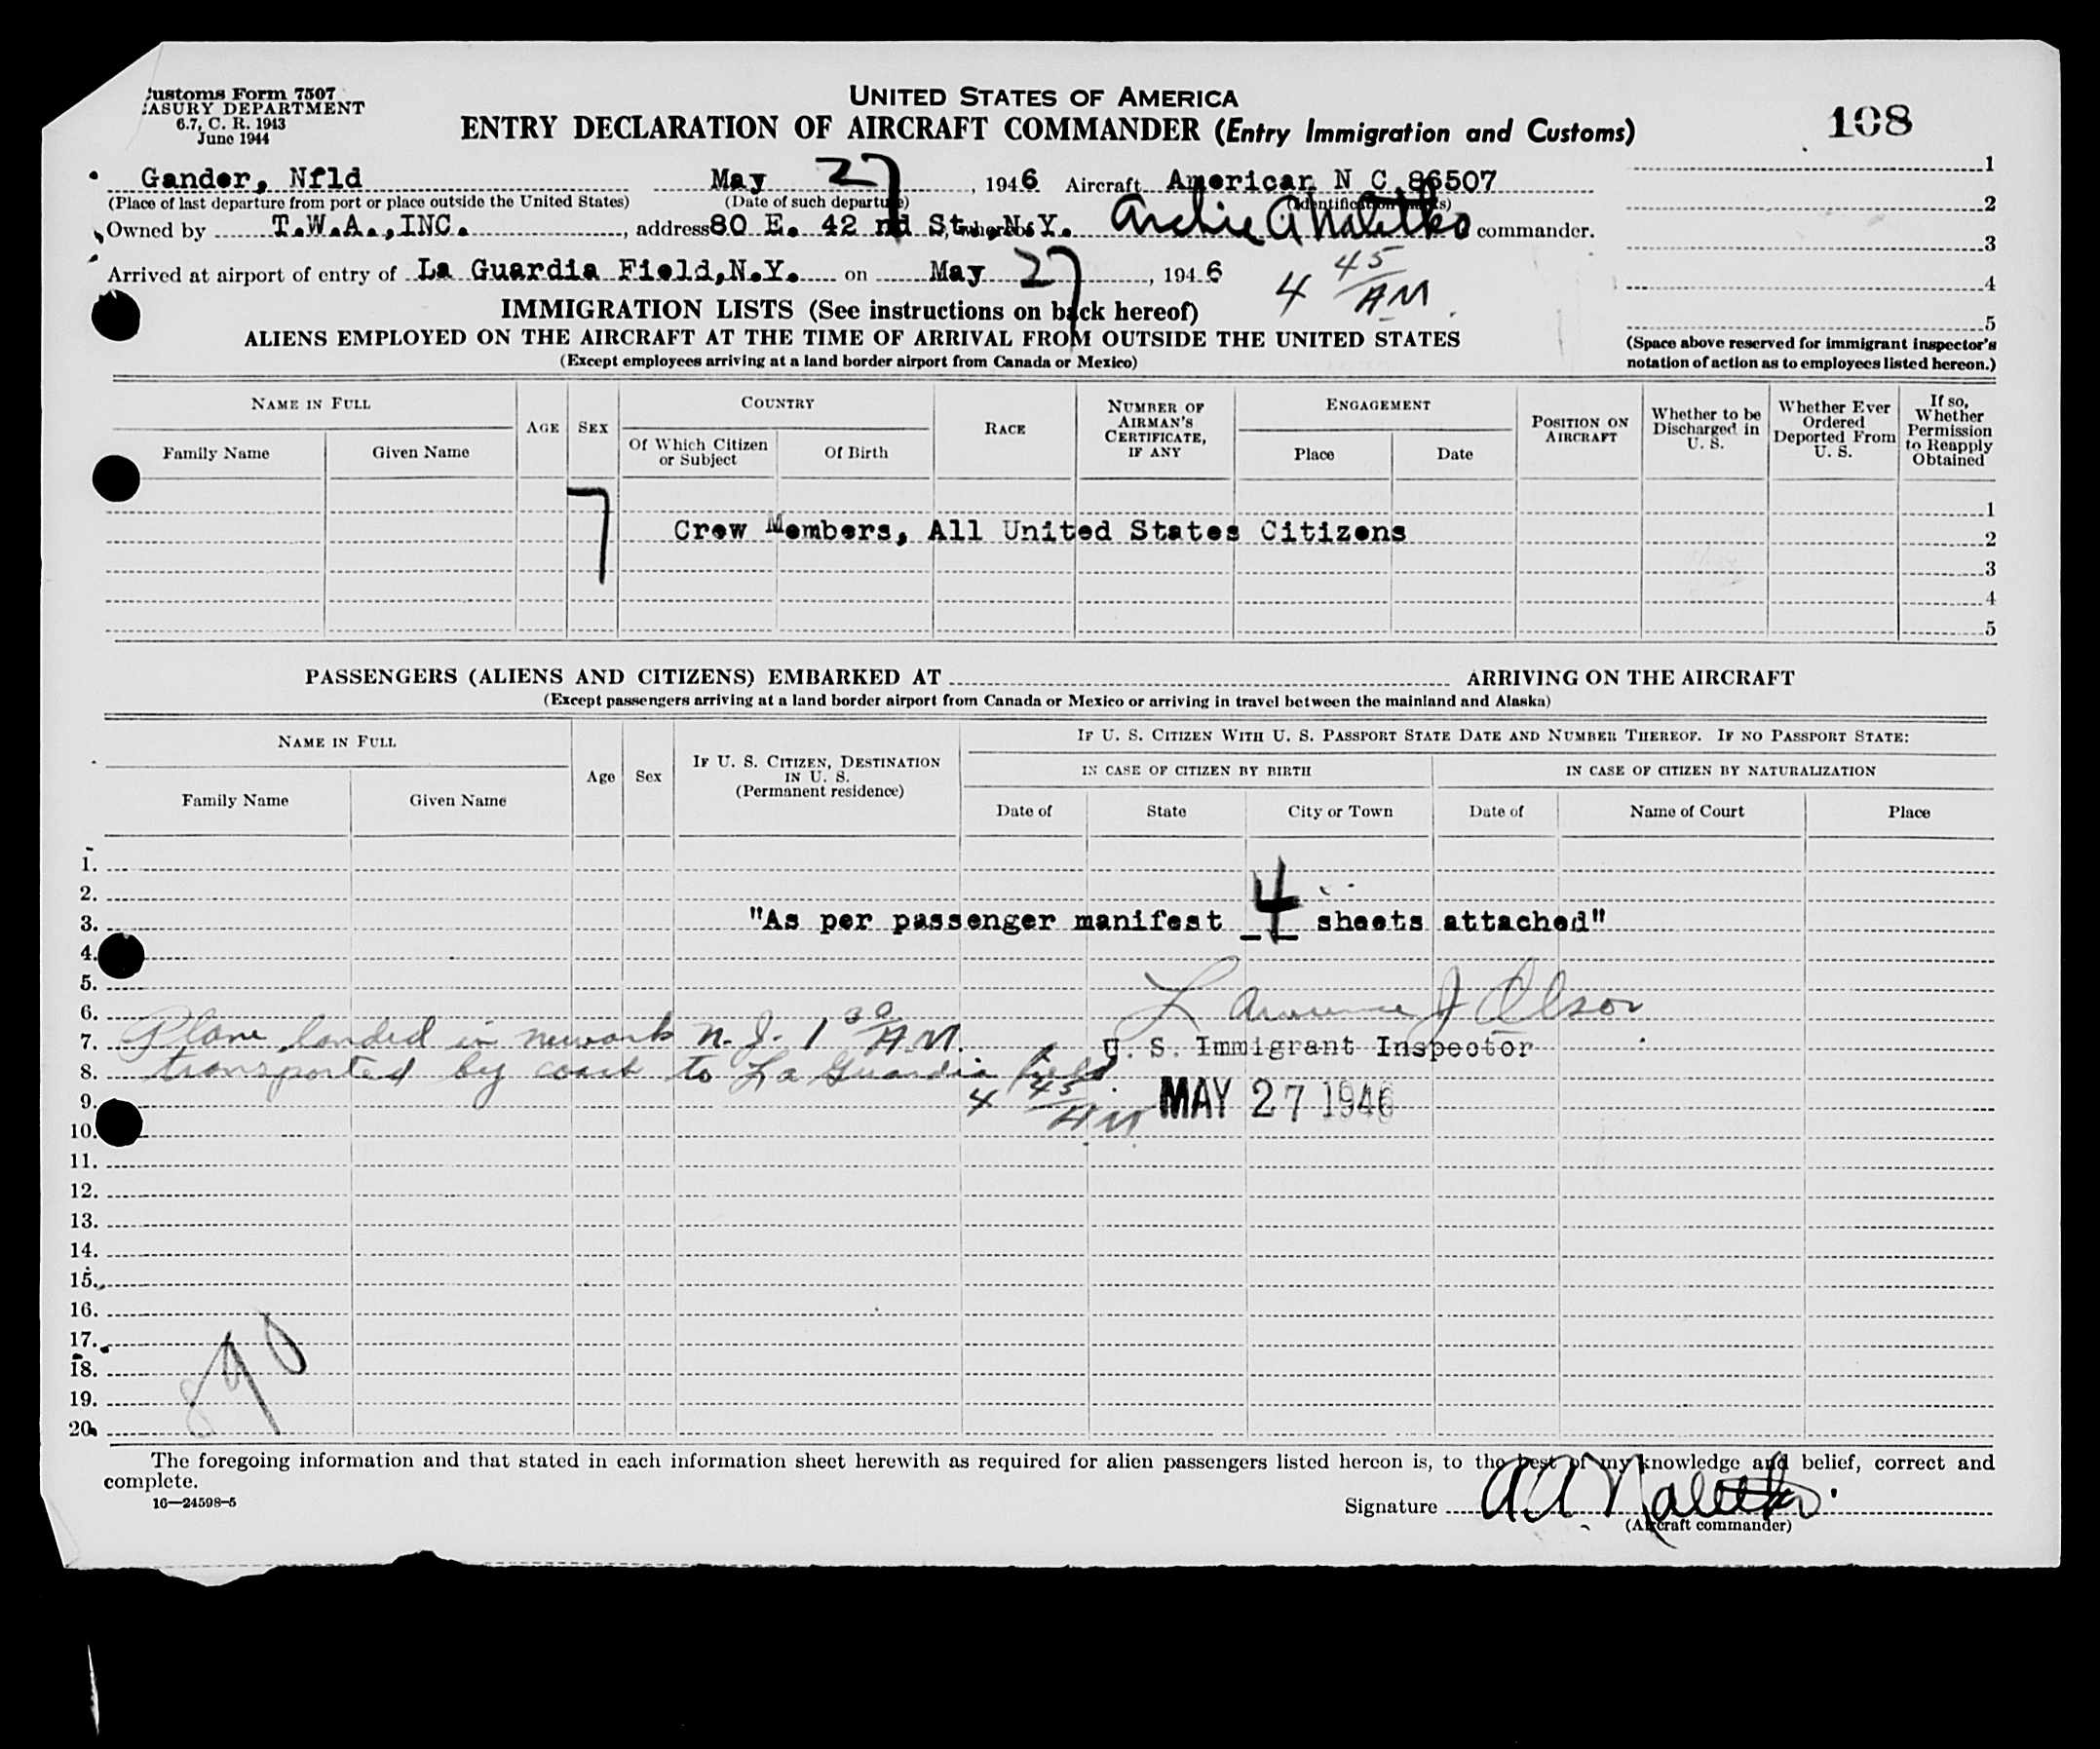 Customs Form 7507
TREASURY DEPARTMENT
6.7, C. R. 1943
June 1944
UNITED STATES OF AMERICA
ENTRY DECLARATION OF AIRCRAFT COMMANDER (Entry Immigration and Customs)
108
Gander, Nfld May 27, 1946 Aircraft American N C 86507
(Place of last departure from port or place outside the United States) (Date of such departure) (Identification marks)
Owned by T.W.A.,INC., address 80 E. 42 nd St., N.Y. whereof Archie A Naletko commander.
Arrived at airport of entry of La Guardia Field,N.Y. on May 27, 1946 4 45 AM
1
2
3
4
5
(Space above reserved for immigrant inspector's
notation of action as to employees listed hereon.)
IMMIGRATION LISTS (See instructions on back hereof)
ALIENS EMPLOYED ON THE AIRCRAFT AT THE TIME OF ARRIVAL FROM OUTSIDE THE UNITED STATES
(Except employees arriving at a land border airport from Canada or Mexico)
NAME IN FULL
Family Name Given Name
AGE SEX
COUNTRY
Of Which Citizen or Subject Of Birth
RACE
NUMBER OF AIRMAN'S CERTIFICATE, IF ANY
ENGAGEMENT
Place Date
POSITION ON AIRCRAFT
Whether to be Discharged in U. S.
Whether Ever Ordered Deported From U. S.
If so, Whether Permission to Reapply Obtained
1
7 Crew Members, All United States Citizens 2
3
4
5
PASSENGERS (ALIENS AND CITIZENS) EMBARKED AT ARRIVING ON THE AIRCRAFT
(Except passengers arriving at a land border airport from Canada or Mexico or arriving in travel between the mainland and Alaska)
NAME IN FULL
Family Name Given Name
Age Sex
IF U. S. CITIZEN, DESTINATION IN U. S. (Permanent residence)
IF U. S. CITIZEN WITH U. S. PASSPORT STATE DATE AND NUMBER THEREOF. IF NO PASSPORT STATE:
IN CASE OF CITIZEN BY BIRTH IN CASE OF CITIZEN BY NATURALIZATION
Date of State City or Town Date of Name of Court Place
1.
2.
3. "As per passenger manifest 4 sheets attached"
4.
5.
6. Lawrence J Olson
7. Plane landed in newark N.J. 1 30 A.M. U. S. Immigrant Inspector
8. transported by coach to La Guardia field
9. 4 45 AM MAY 27 1946
10.
11.
12.
13.
14.
15.
16.
17.
18. 890
19.
20.
The foregoing information and that stated in each information sheet herewith as required for alien passengers listed hereon is, to the best of my knowledge and belief, correct and
complete.
16—24598-5
Signature A A Naletko
(Aircraft commander)